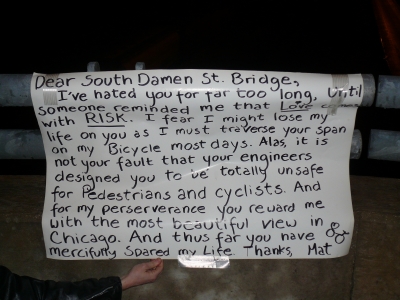 Dear South Damen St. Bridge,
I've hated you for far too long, Until
someone reminded me that Love
with RISK. I fear I might lose my
life on you as I must traverse your span
on my Bicycle most days. Alas, it is
not your fault that your engineers
designed you to be totally unsafe
for Pedestrians and cyclists. And
for my perserverance you reward me
with the most beautiful view in
Chicago. And thus far you have
mercifully Spared my Life. Thanks, Mat